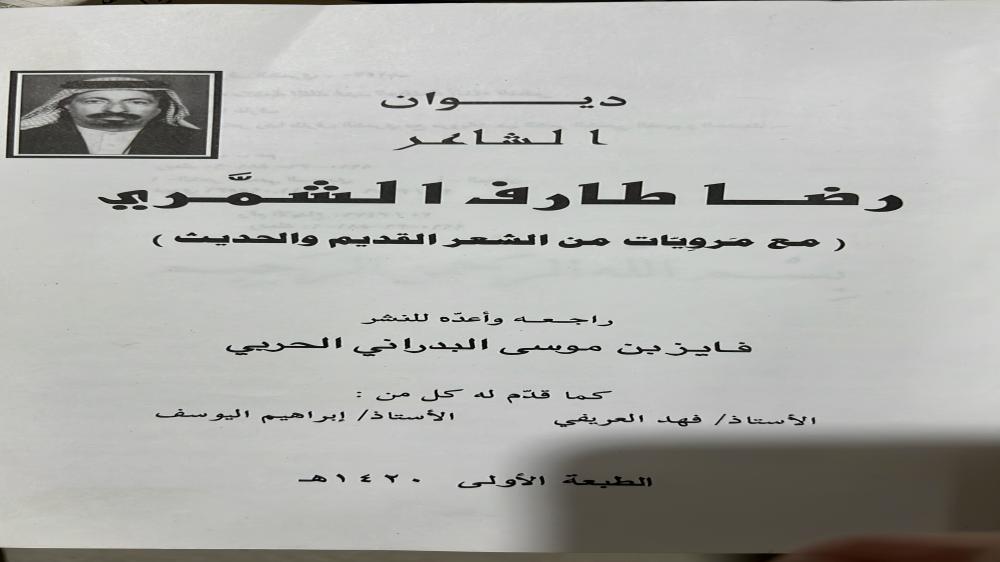 ديـــوان
الشاعر
رضا طارف الشمَّري
( مع مَرويَات من الشعر القديم والحديث )
راجعه وأعدّه للنشر
فايز بن موسى البدراني الحربي
كما قدّم له كل من :
الأستاذ/ فهد العريفي الأستاذ/ إبراهيم اليوسف
الطبعة الأولى ١٤٢٠هـ